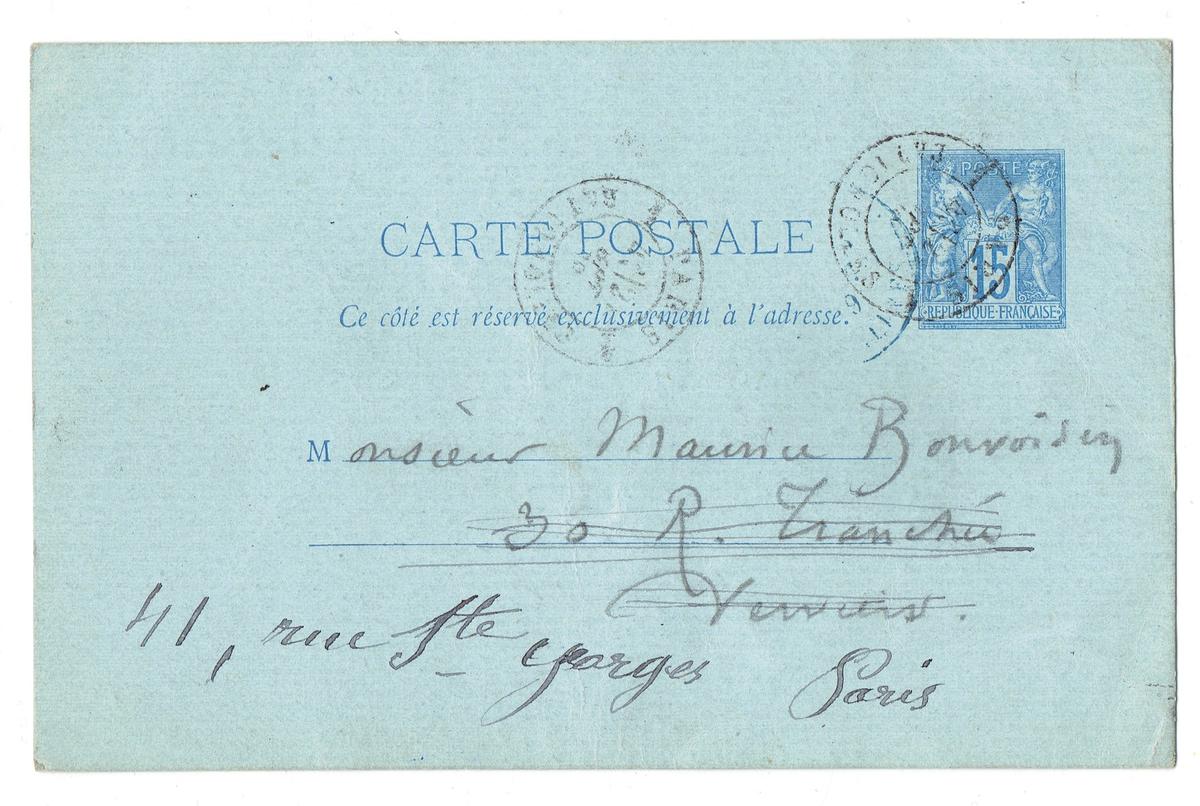 POSTE
15
REPUBLIQUE FRANÇAISE
CARTE POSTALE
BATIGNOLLES
PARIS
BATIGNOLLES
PARIS
Ce côté est réservé exclusivement à l'adresse.
Monsieur Maurice Bonvoisin
30 R. Tranchée
Verviers.
41, rue Ste Georges Paris